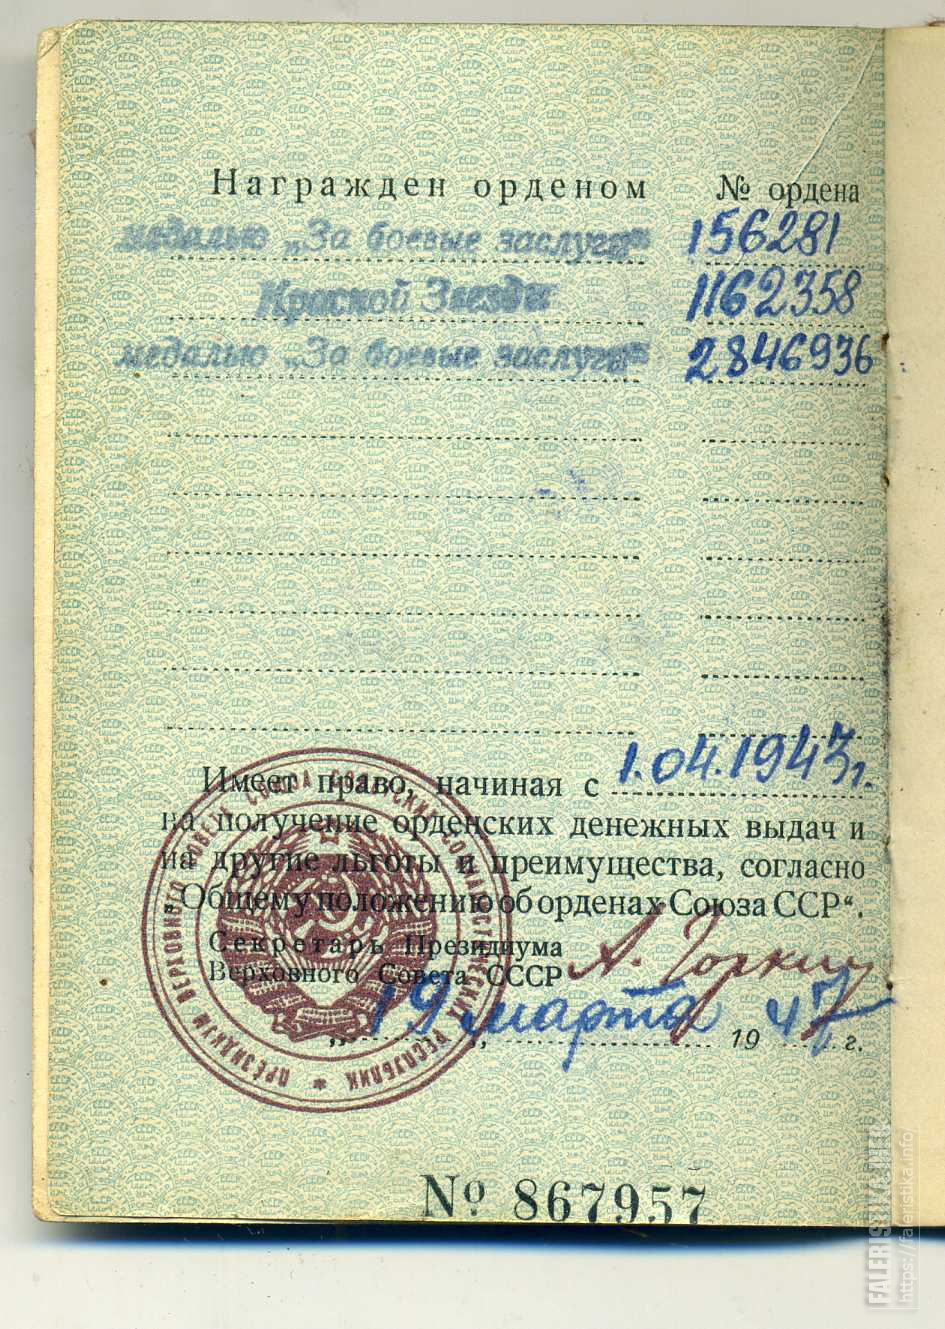 Награжден орденом № ордена
медалью „За боевые заслуги" 156281
Красной Звезды 1162358
медалью „За боевые заслуги" 2846936
Имеет право, начиная с 1.04.1943 г.
на получение орденских денежных выдач и
на другие льготы и преимущества, согласно
„Общему положению об орденах Союза ССР“.
Секретарь Президиума
Верховного Совета СССР А. Горкин
„19„ марта 1947 г.
ПРЕЗИДИУМ ВЕРХОВНОГО СОВЕТА СОЮЗА СОВЕТСКИХ СОЦИАЛИСТИЧЕСКИХ РЕСПУБЛИК *
№ 867957
FALERISTIKA.INFO
https://faleristika.info/